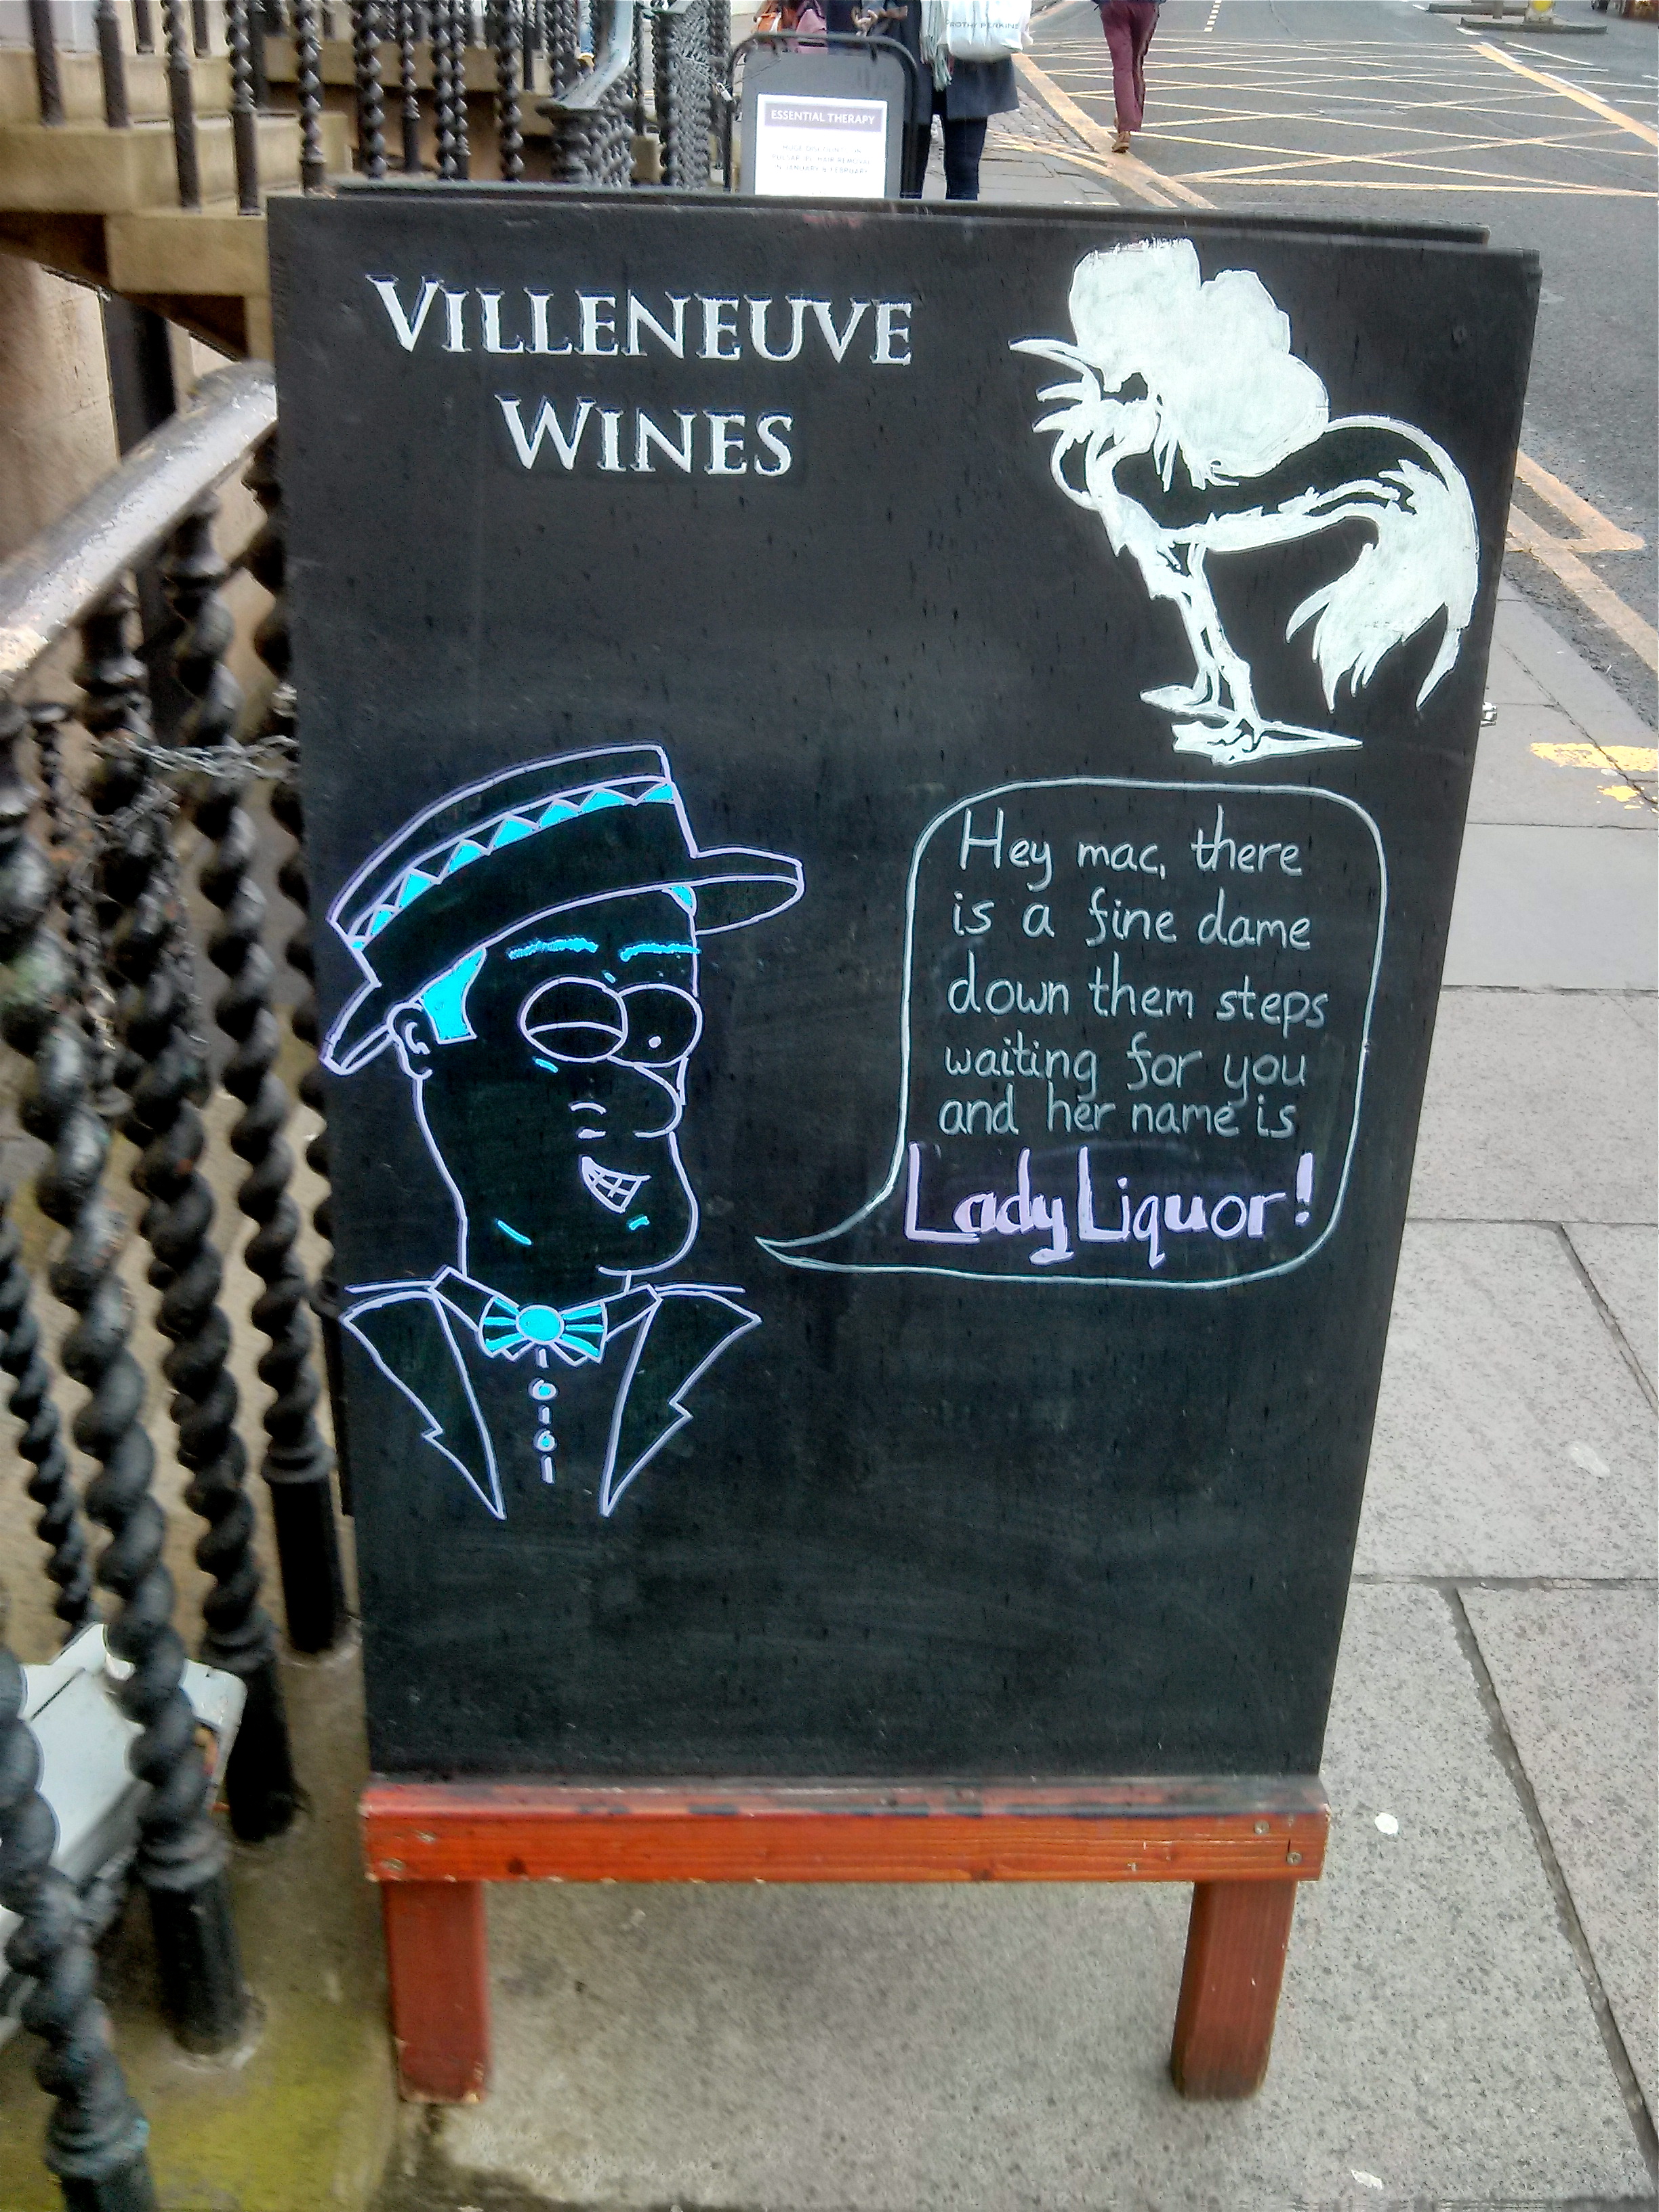 ESSENTIAL THERAPY
VILLENEUVE
WINES
Hey mac, there
is a fine dame
down them steps
waiting for you
and her name is
Lady Liquor!